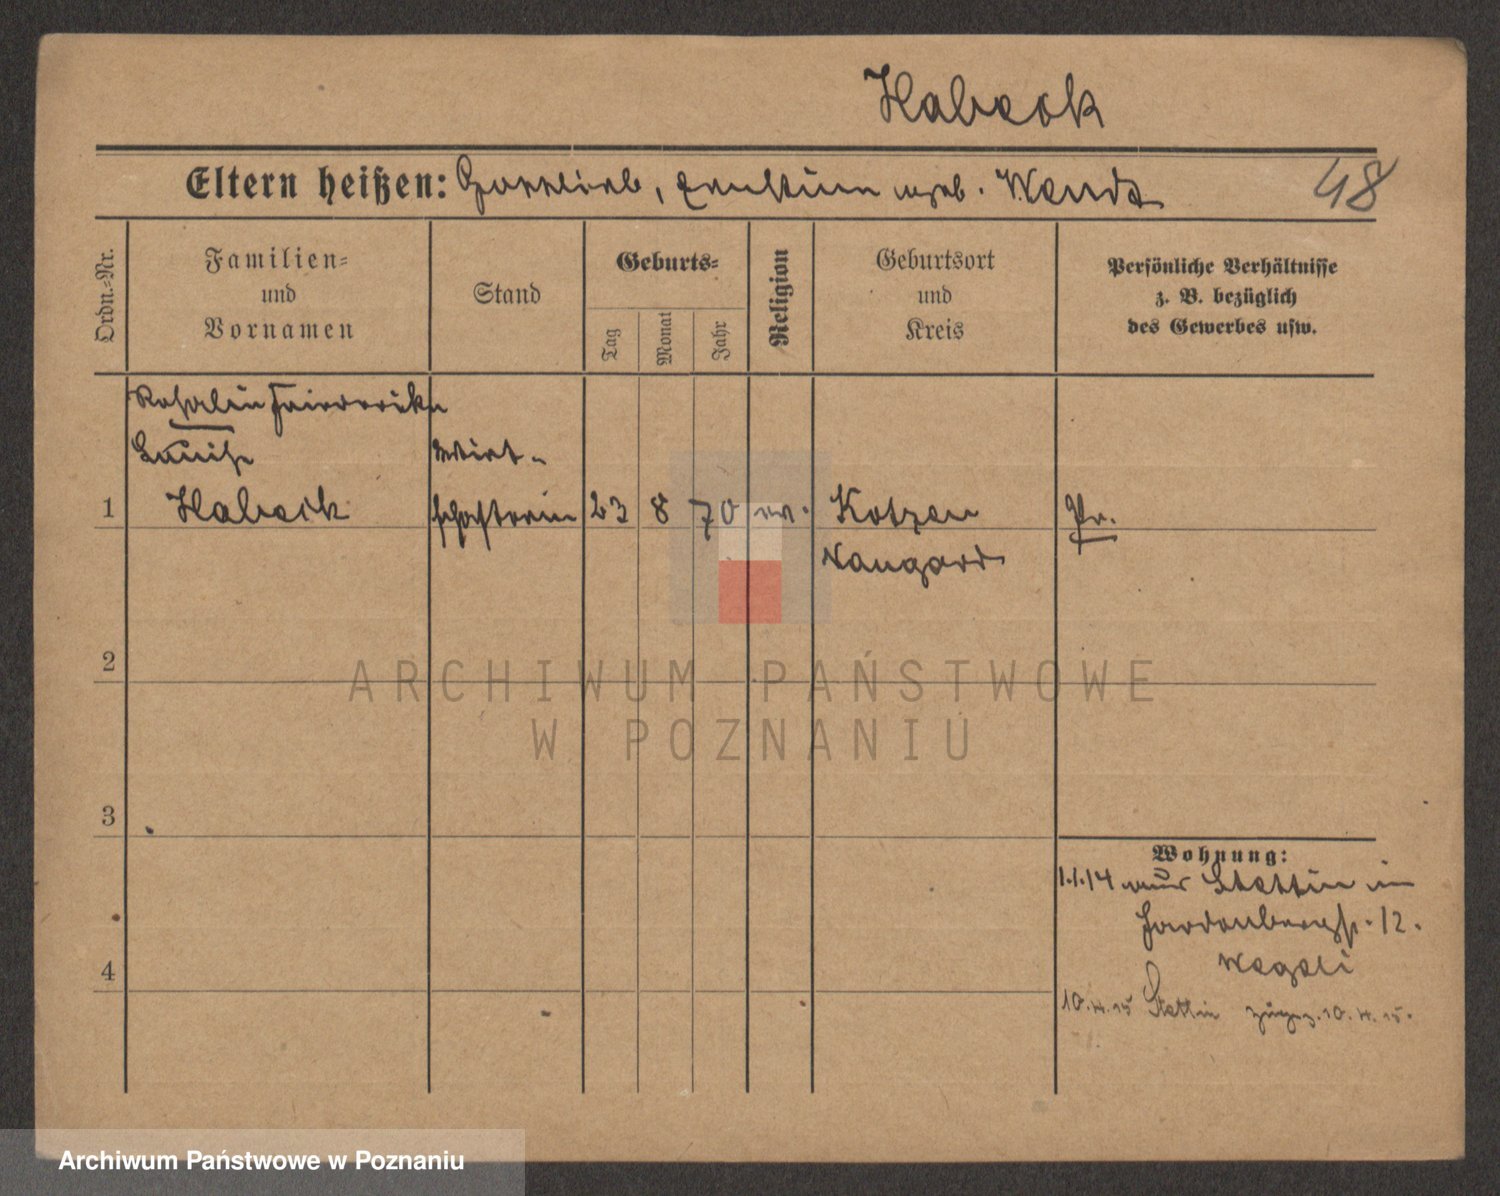 Habeck
Eltern heißen: Gottlieb, geb. Wendt
48
Ordn.-Nr.
Familien-
und
Vornamen
Stand
Geburts-
Tag
Monat
Jahr
Religion
Geburtsort
und
Kreis
Persönliche Verhältnisse
z. B. bezüglich
des Gewerbes usw.
Rosalie Friederike
Luise
Habeck
Wirt-
schafterin
1
23
8
70
ev.
Kotzen
Naugard
Pr.
2
3
4
Wohnung:
1.1.14 aus Stettin in
Hardenbergstr. 12.
10.4.15 Stettin 10.4.15.
ARCHIWUM PAŃSTWOWE
W POZNANIU
Archiwum Państwowe w Poznaniu